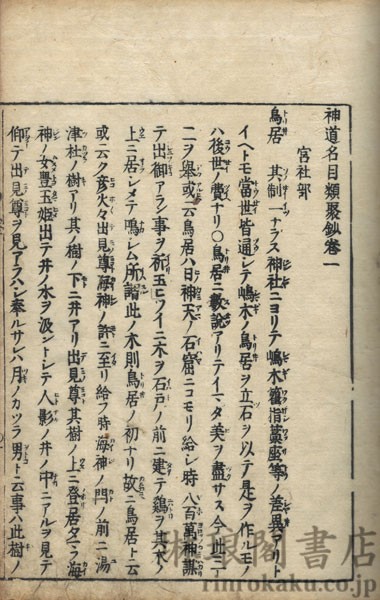 神道名目類聚鈔卷一
宮社部
鳥居 其制一ナラス神社ニヨリテ嶋木籠指藁座等ノ差異アリト
イヘトモ當世皆通シテ嶋木ノ鳥居ヲ立石ヲ以テ是ヲ作ルモノ
ハ後世ノ費ナリ○鳥居ニ數説アリテイマタ美ヲ盡サス今此ニ一
二ヲ舉或云鳥居ハ日神天ノ石窟ニコモリ給シ時八百萬神謀
テ出御アラン事ヲ祈玉ヒツイニ木ヲ石戸ノ前ニ建テ鷄ヲ其木ノ
上ニ居シメテ鳴シム所謂此ノ木則鳥居ノ初ナリ故ニ鳥居ト云
或云ク彦火々出見尊海神ノ許ニ至リ給フ時海神ノ門ノ前ニ湯
津杜ノ樹アリ其ノ樹ノ下ニ井アリ出見尊其樹ノ上ニ登居タマフ海
神ノ女豊玉姫出テ井ノ水ヲ汲ントシテ人影ノ井ノ中ニアルヲ見テ
仰テ出見尊ヲ見アラハシ奉ルサレハ月ノカツラ男ト云事ハ此樹ノ
琳琅閣書店
rinrokaku.co.jp